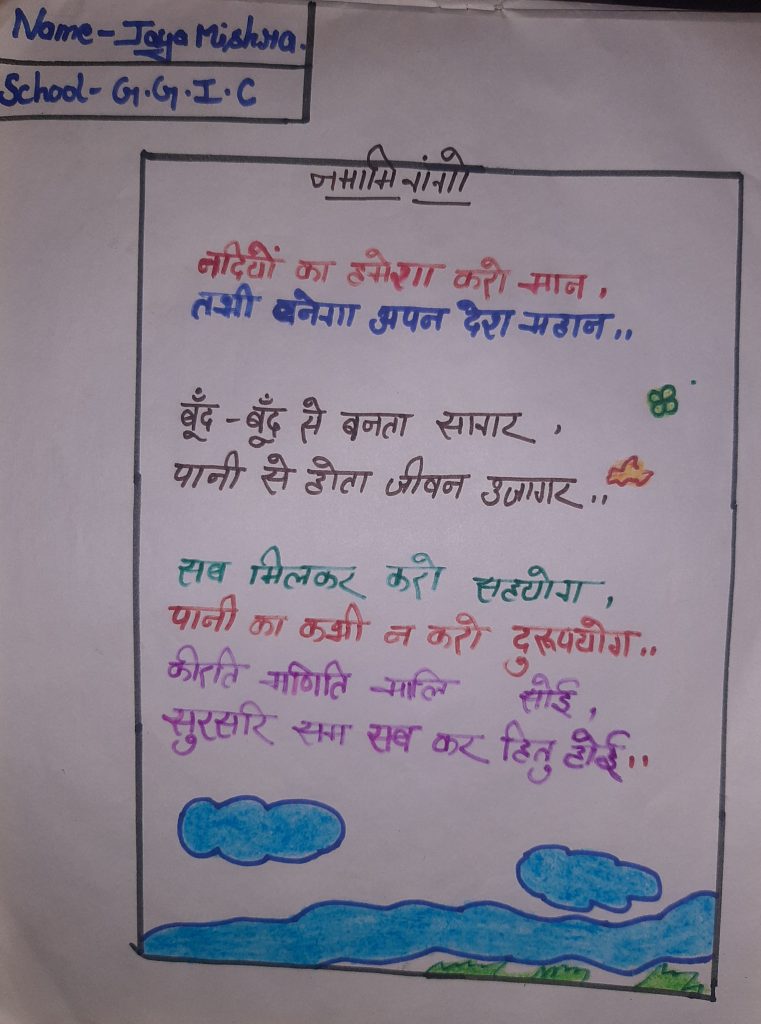 Name - Jaya Mishra.
School - G.G.I.C
नमामि गंगे
नदियों का हमेशा करो मान,
तभी बनेगा अपन देश महान..
बूँद - बूँद से बनता सागर,
पानी से होता जीवन उजागर..
सब मिलकर करो सहयोग,
पानी का कभी न करो दुरूपयोग..
कीरति भणिति भालि सोई,
सुरसरि सम सब कर हितु होई..